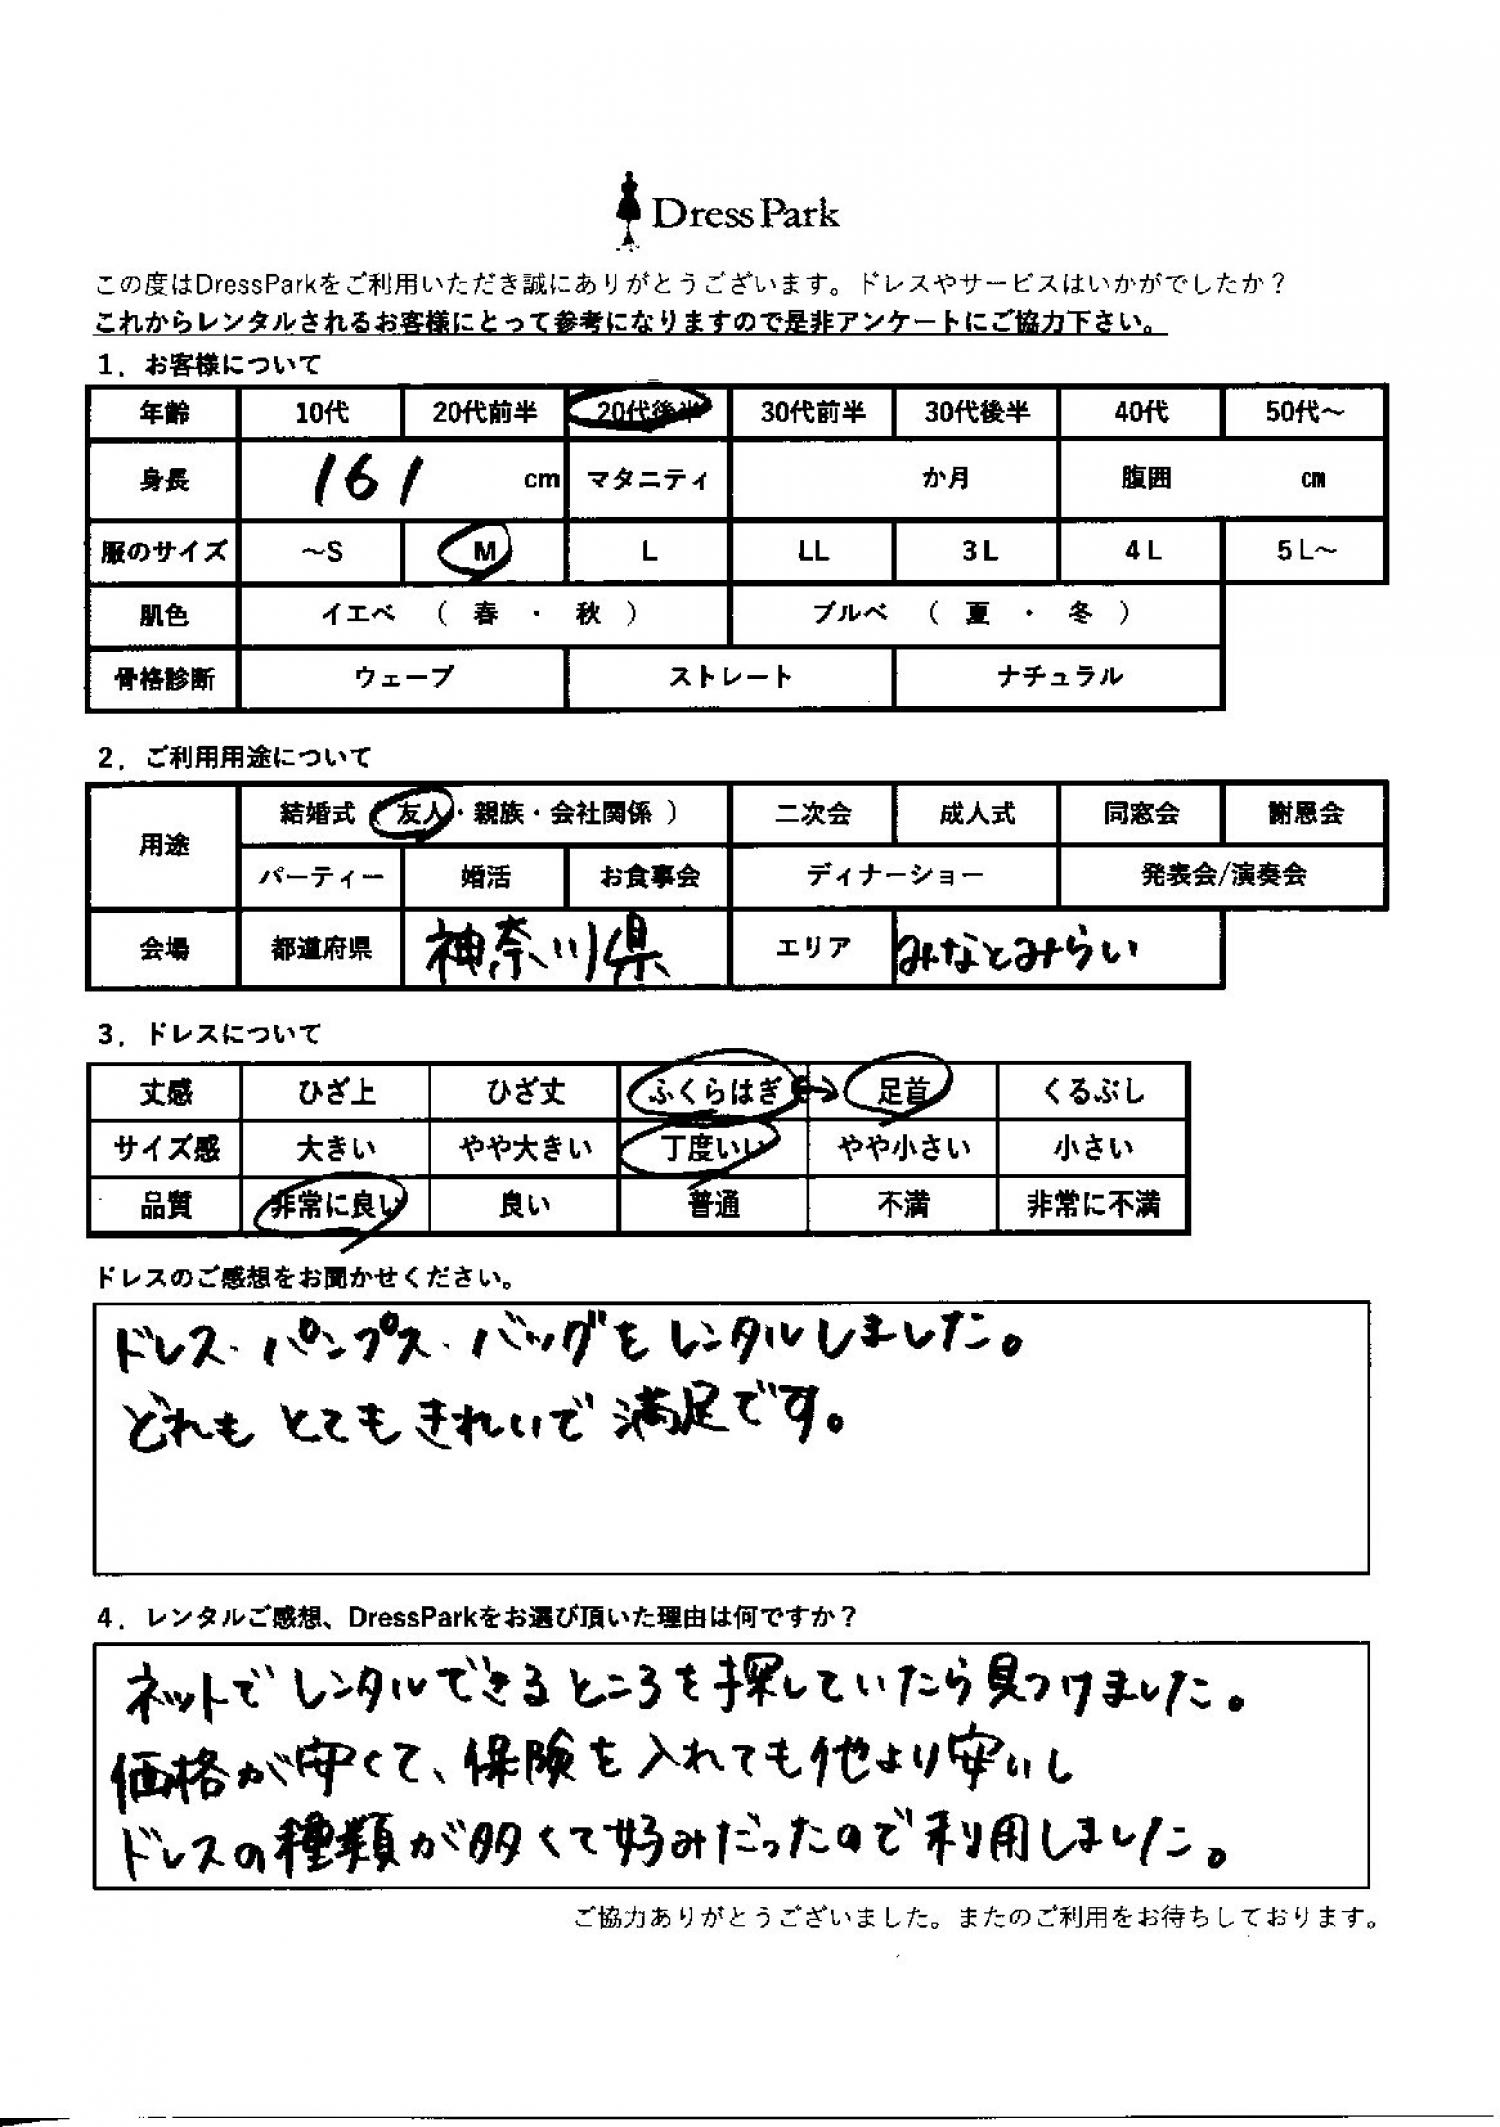 Dress Park
この度はDressParkをご利用いただき誠にありがとうございます。ドレスやサービスはいかがでしたか？
これからレンタルされるお客様にとって参考になりますので是非アンケートにご協力下さい。
1．お客様について
年齢 10代 20代前半 20代後半 30代前半 30代後半 40代 50代～
身長 161 cm マタニティ か月 腹囲 ㎝
服のサイズ ～S M L LL 3L 4L 5L～
肌色 イエベ （ 春 ・ 秋 ） ブルベ （ 夏 ・ 冬 ）
骨格診断 ウェーブ ストレート ナチュラル
2．ご利用用途について
用途 結婚式（ 友人・親族・会社関係 ） 二次会 成人式 同窓会 謝恩会
パーティー 婚活 お食事会 ディナーショー 発表会/演奏会
会場 都道府県 神奈川県 エリア みなとみらい
3．ドレスについて
丈感 ひざ上 ひざ丈 ふくらはぎ → 足首 くるぶし
サイズ感 大きい やや大きい 丁度いい やや小さい 小さい
品質 非常に良い 良い 普通 不満 非常に不満
ドレスのご感想をお聞かせください。
ドレス・パンプス・バッグをレンタルしました。
どれもとてもきれいで満足です。
4．レンタルご感想、DressParkをお選び頂いた理由は何ですか？
ネットでレンタルできるところを探していたら見つけました。
価格が安くて、保険を入れても他より安いし
ドレスの種類が多くて好みだったので利用しました。
ご協力ありがとうございました。またのご利用をお待ちしております。